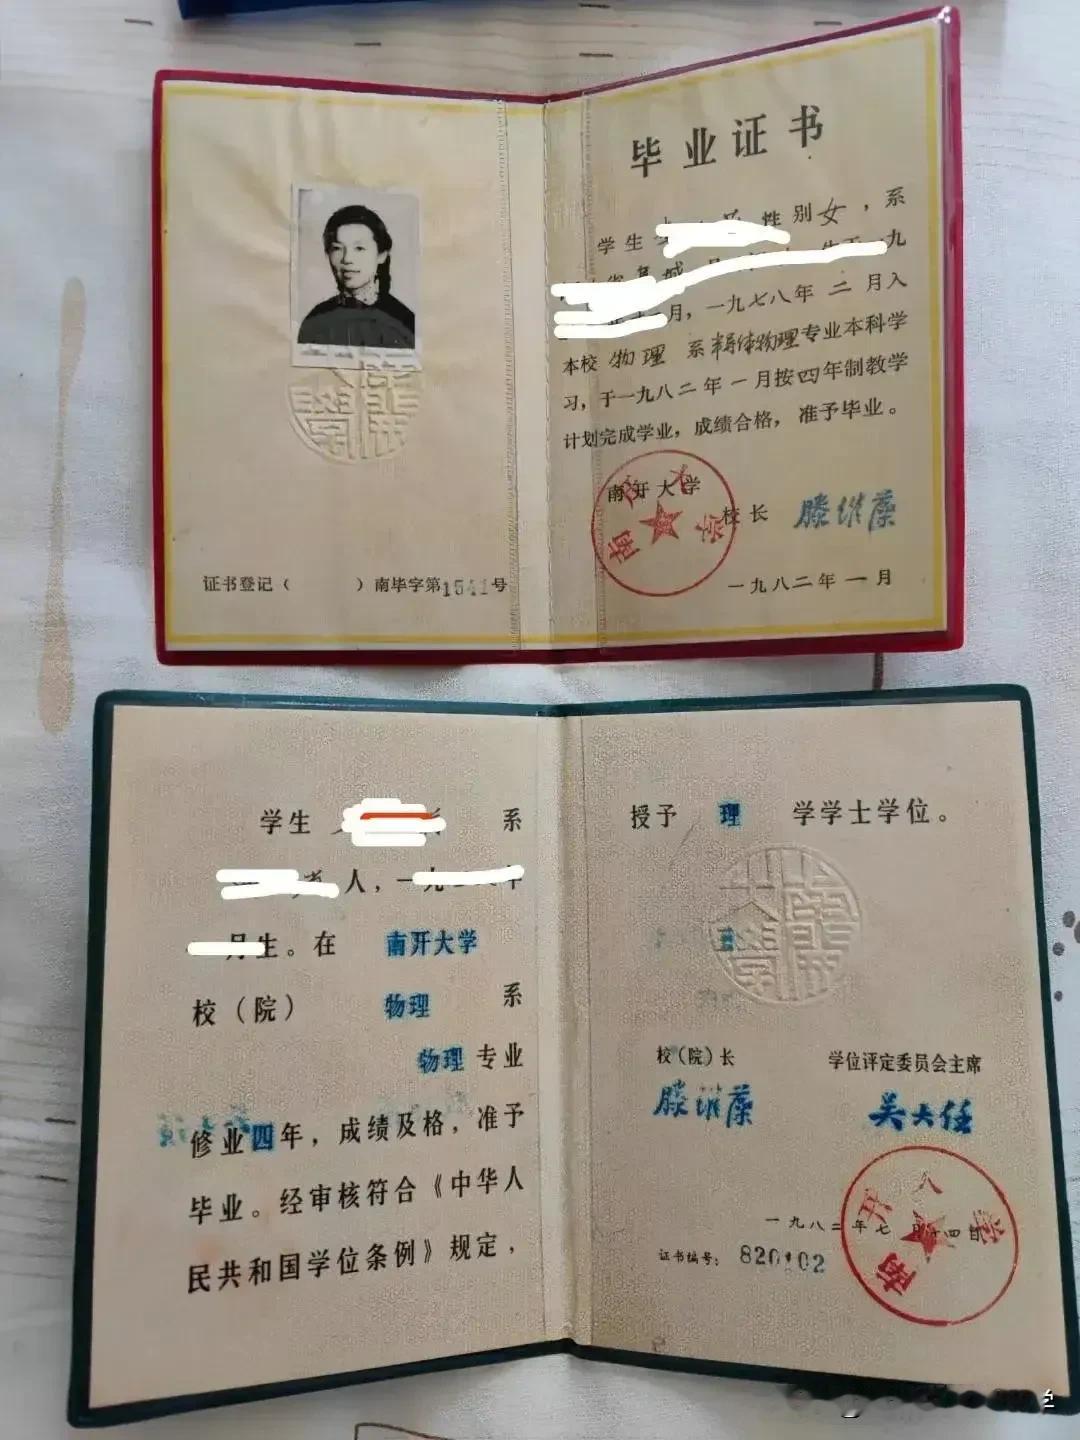 毕业证书
学生 性别女，系
省 城 九
月，一九七八年二月入
本校物理系半导体物理专业本科学
习，于一九八二年一月按四年制教学
计划完成学业，成绩合格，准予毕业。
南开大学
校长 滕维藻
南开大学
一九八二年一月
证书登记（ ）南毕字第1541号
学生 系
人，一九 年
月生。在 南开大学
校（院） 物理 系
物理 专业
修业四年，成绩及格，准予
毕业。经审核符合《中华人
民共和国学位条例》规定，
授予 理 学学士学位。
校（院）长
滕维藻
学位评定委员会主席
吴大任
南开大学
一九八二年七月十四日
证书编号：820102